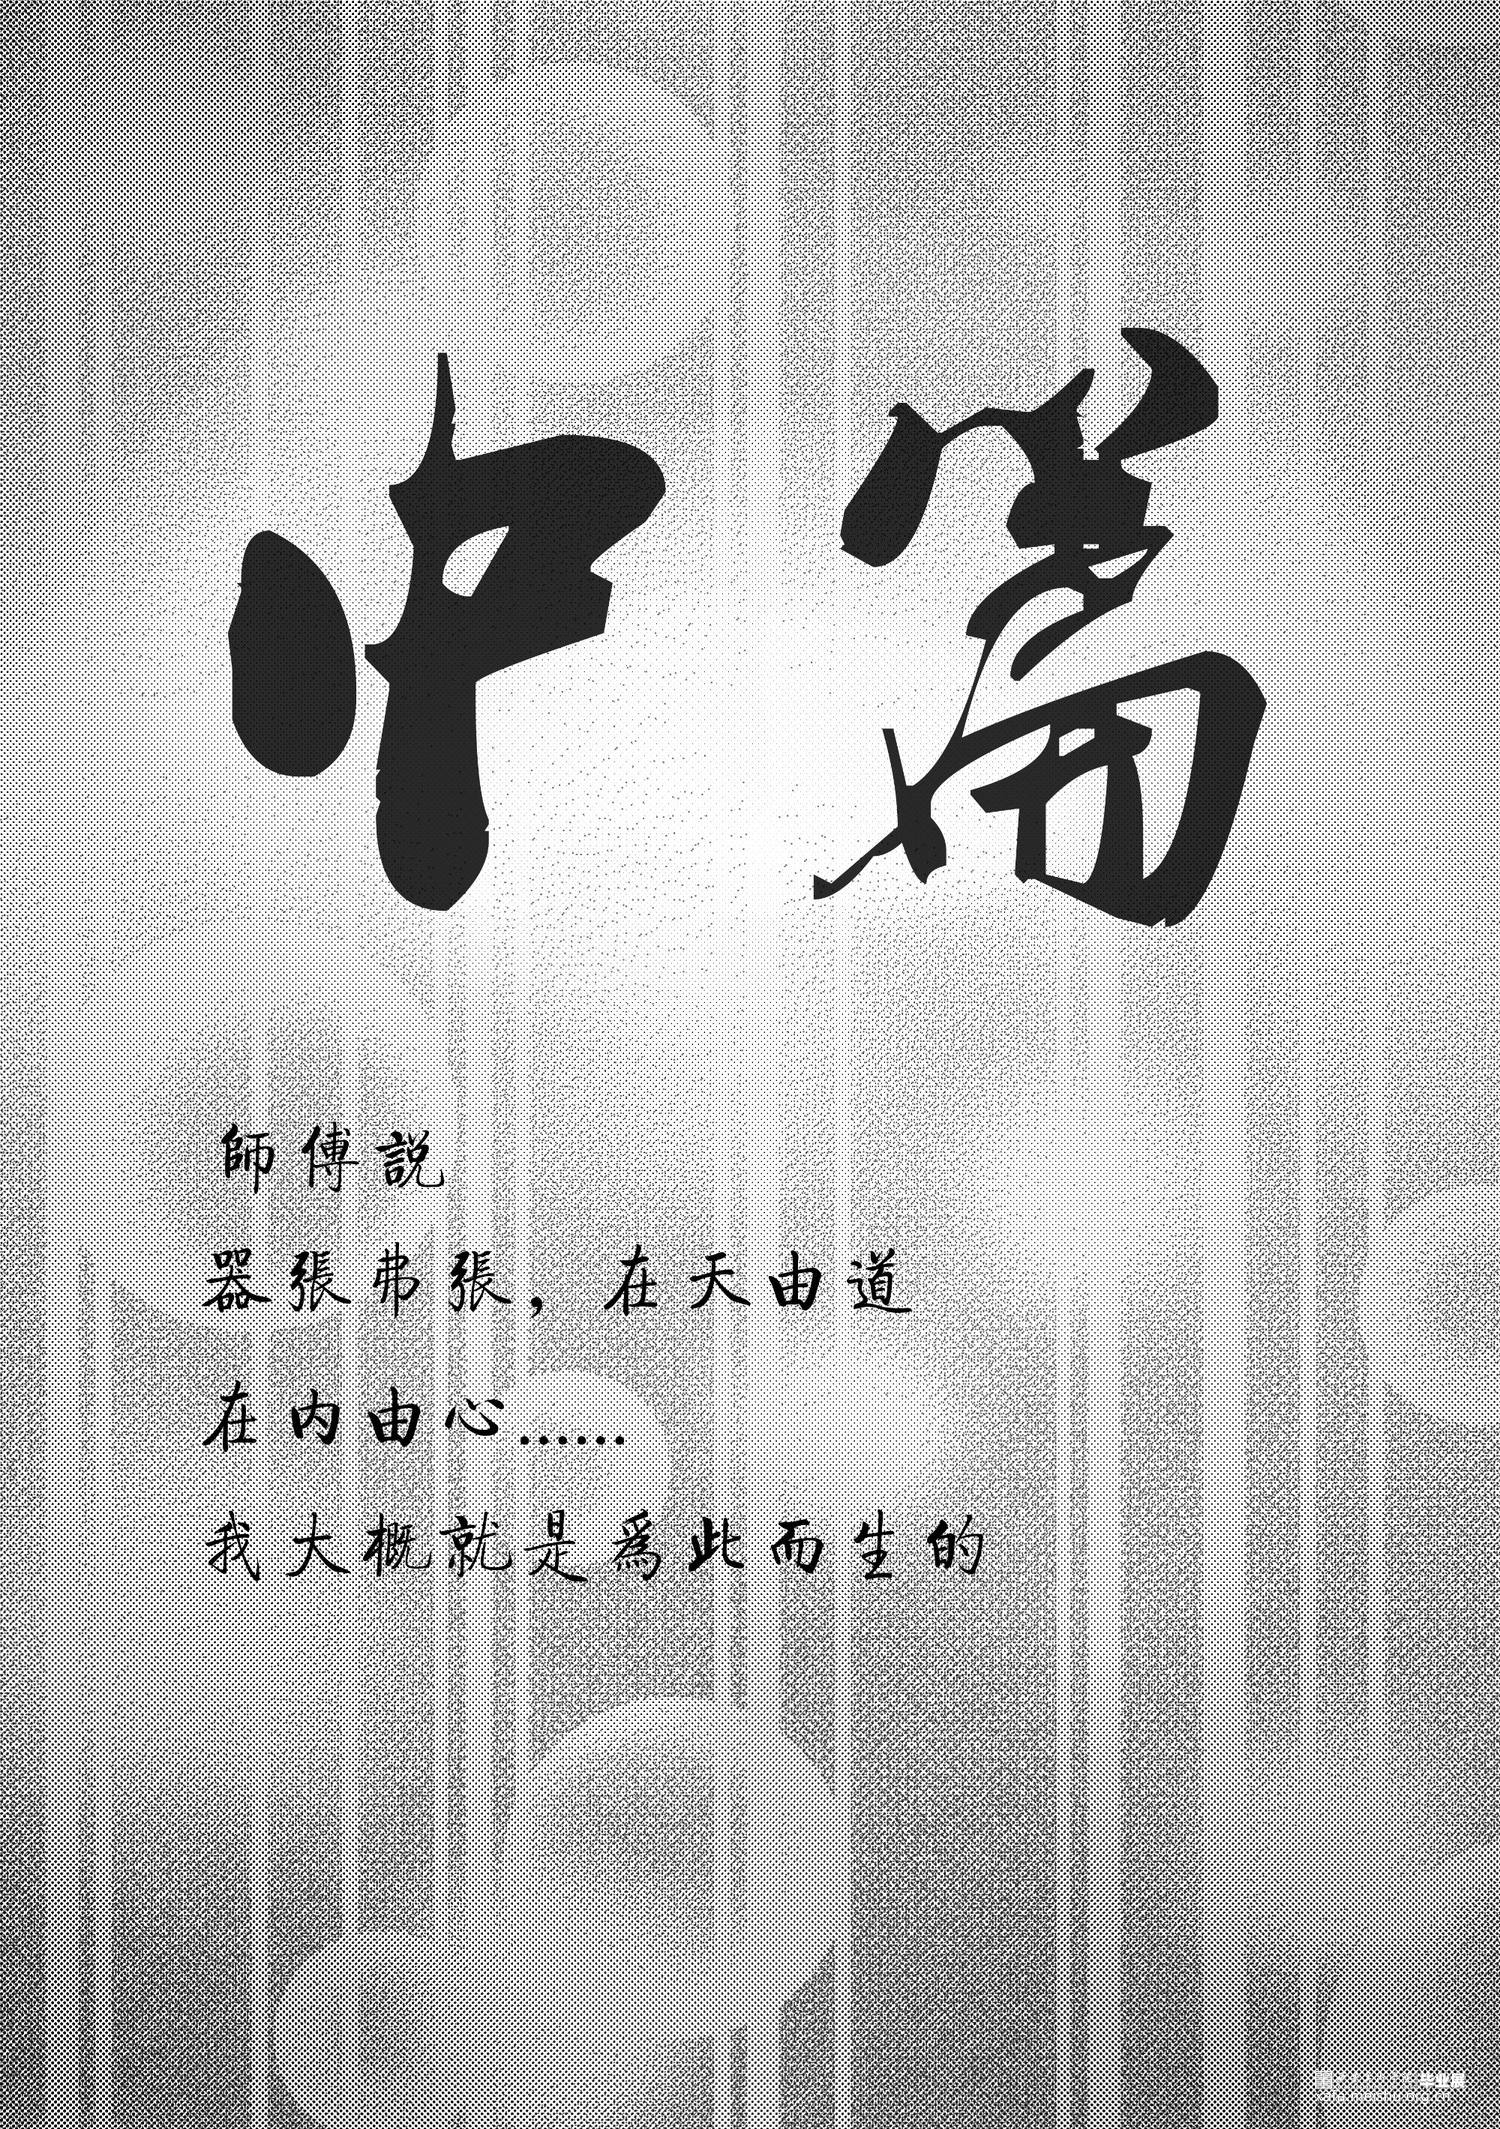 中篇
師傅説
器張弗張，在天由道
在内由心……
我大概就是爲此而生的
毕业展